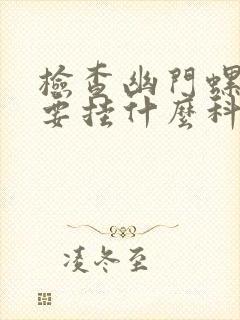 檢查幽門螺
要挂什麼科
凌冬至